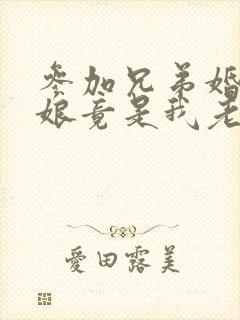 参加兄弟婚
娘竟是我老
爱田露美